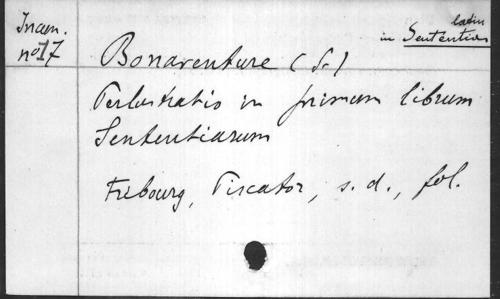 Incun.
no 17
latin
in Sententias
Bonaventure (S.)
Perlustratio in primum librum
Sententiarum
Fribourg, Piscator, s.d., fol.